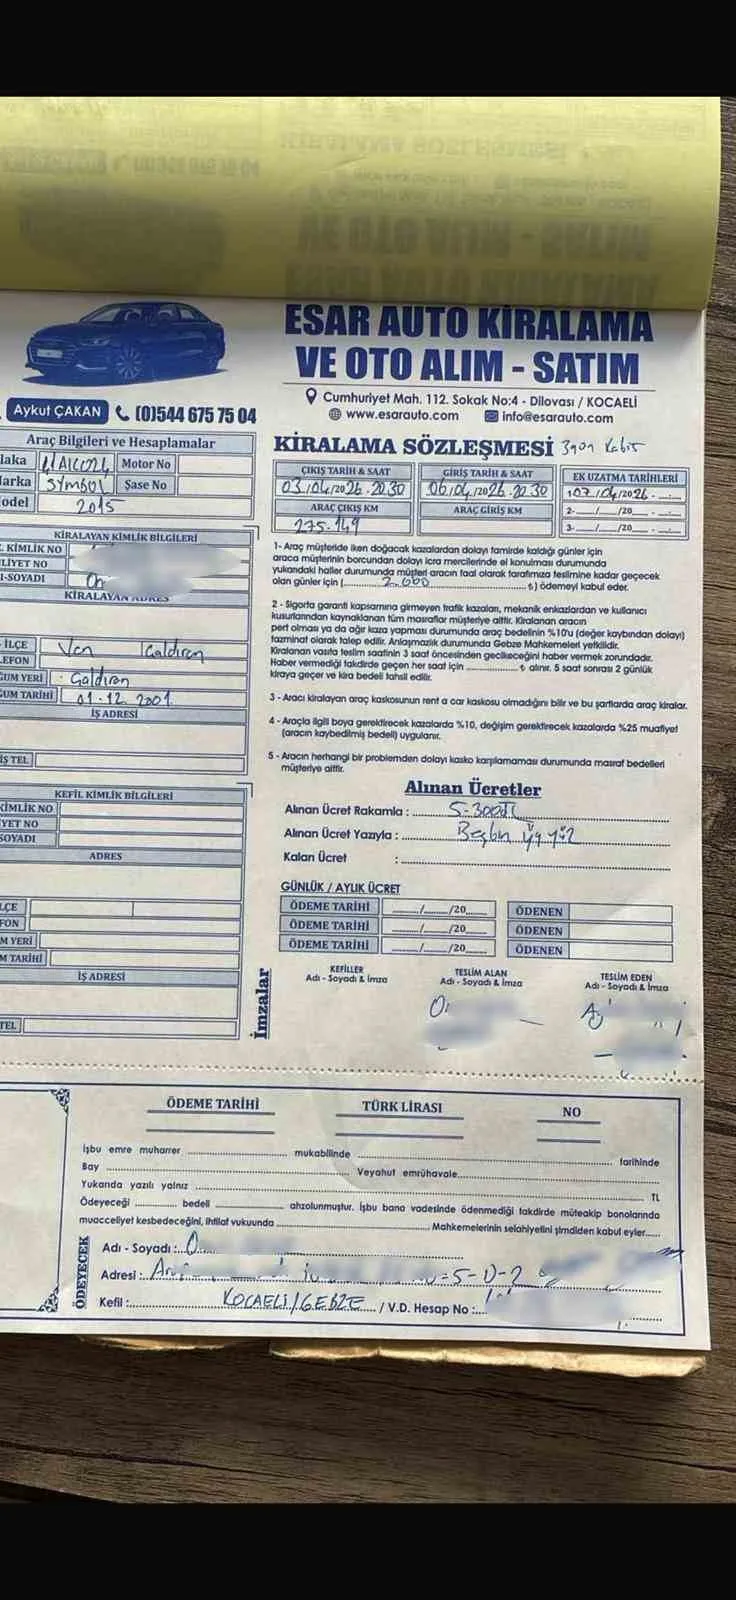 ESAR AUTO KİRALAMA
VE OTO ALIM - SATIM
Cumhuriyet Mah. 112. Sokak No:4 - Dilovası / KOCAELİ
www.esarauto.com info@esarauto.com
Aykut ÇAKAN (0)544 675 75 04
Araç Bilgileri ve Hesaplamalar
laka Motor No
arka SYMBOL Şase No
odel 2015
KİRALAYAN KİMLİK BİLGİLERİ
. KİMLİK NO
LİYET NO
I-SOYADI
KİRALAYAN ADRES
İLÇE Van Çaldıran
EFON
UM YERİ Çaldıran
UM TARİHİ 01.12.2001
İŞ ADRESİ
İŞ TEL
KEFİL KİMLİK BİLGİLERİ
KİMLİK NO
YET NO
SOYADI
ADRES
LÇE
FON
M YERİ
M TARİHİ
İŞ ADRESİ
TEL
KİRALAMA SÖZLEŞMESİ
ÇIKIŞ TARİH & SAAT GİRİŞ TARİH & SAAT EK UZATMA TARİHLERİ
03/04/2026-20.30 06/04/2026-20.30 1-07/04/2026-
ARAÇ ÇIKIŞ KM ARAÇ GİRİŞ KM 2-....../....../20......
275.149 3-....../....../20......
1- Araç müşteride iken doğacak kazalardan dolayı tamirde kaldığı günler için
araca müşterinin borcundan dolayı icra mercilerinde el konulması durumunda
yukarıdaki haller durumunda müşteri aracın faal olarak tarafımıza teslimine kadar geçecek
olan günler için (......2.000...... ₺) ödemeyi kabul eder.
2 - Sigorta garanti kapsamına girmeyen trafik kazaları, mekanik enkazlardan ve kullanıcı
kusurlarından kaynaklanan tüm masraflar müşteriye aittir. Kiralanan aracın
pert olması ya da ağır kaza yapması durumunda araç bedelinin %10'u (değer kaybından dolayı)
tazminat olarak talep edilir. Anlaşmazlık durumunda Gebze Mahkemeleri yetkilidir.
Kiralanan vasıta teslim saatinin 3 saat öncesinden gecikeceğini haber vermek zorundadır.
Haber vermediği takdirde geçen her saat için ............... ₺ alınır. 5 saat sonrası 2 günlük
kiraya geçer ve kira bedeli tahsil edilir.
3 - Aracı kiralayan araç kaskosunun rent a car kaskosu olmadığını bilir ve bu şartlarda araç kiralar.
4 - Araçla ilgili boya gerektirecek kazalarda %10, değişim gerektirecek kazalarda %25 muafiyet
(aracın kaybedilmiş bedeli) uygulanır.
5 - Aracın herhangi bir problemden dolayı kasko karşılamaması durumunda masraf bedelleri
müşteriye aittir.
Alınan Ücretler
Alınan Ücret Rakamla : 5-300TL
Alınan Ücret Yazıyla : Beşbin Üç yüz
Kalan Ücret :
GÜNLÜK / AYLIK ÜCRET
ÖDEME TARİHİ ....../....../20...... ÖDENEN
ÖDEME TARİHİ ....../....../20...... ÖDENEN
ÖDEME TARİHİ ....../....../20...... ÖDENEN
İmzalar
KEFİLLER TESLİM ALAN TESLİM EDEN
Adı - Soyadı & İmza Adı - Soyadı & İmza Adı - Soyadı & İmza
ÖDEME TARİHİ TÜRK LİRASI NO
İşbu emre muharrer ............... mukabilinde ............... tarihinde
Bay ............... Veyahut emrühavale...............
Yukarıda yazılı yalnız ............... TL
Ödeyeceği ............... bedeli ............... ahzolunmuştur. İşbu bano vadesinde ödenmediği takdirde müteakip bonolarında
muacceliyet kesbedeceğini, ihtilaf vukuunda ............... Mahkemelerinin selahiyetini şimdiden kabul eyler......
ÖDEYECEK
Adı - Soyadı :
Adresi :
Kefil : KOCAELİ/GEBZE / V.D. Hesap No :